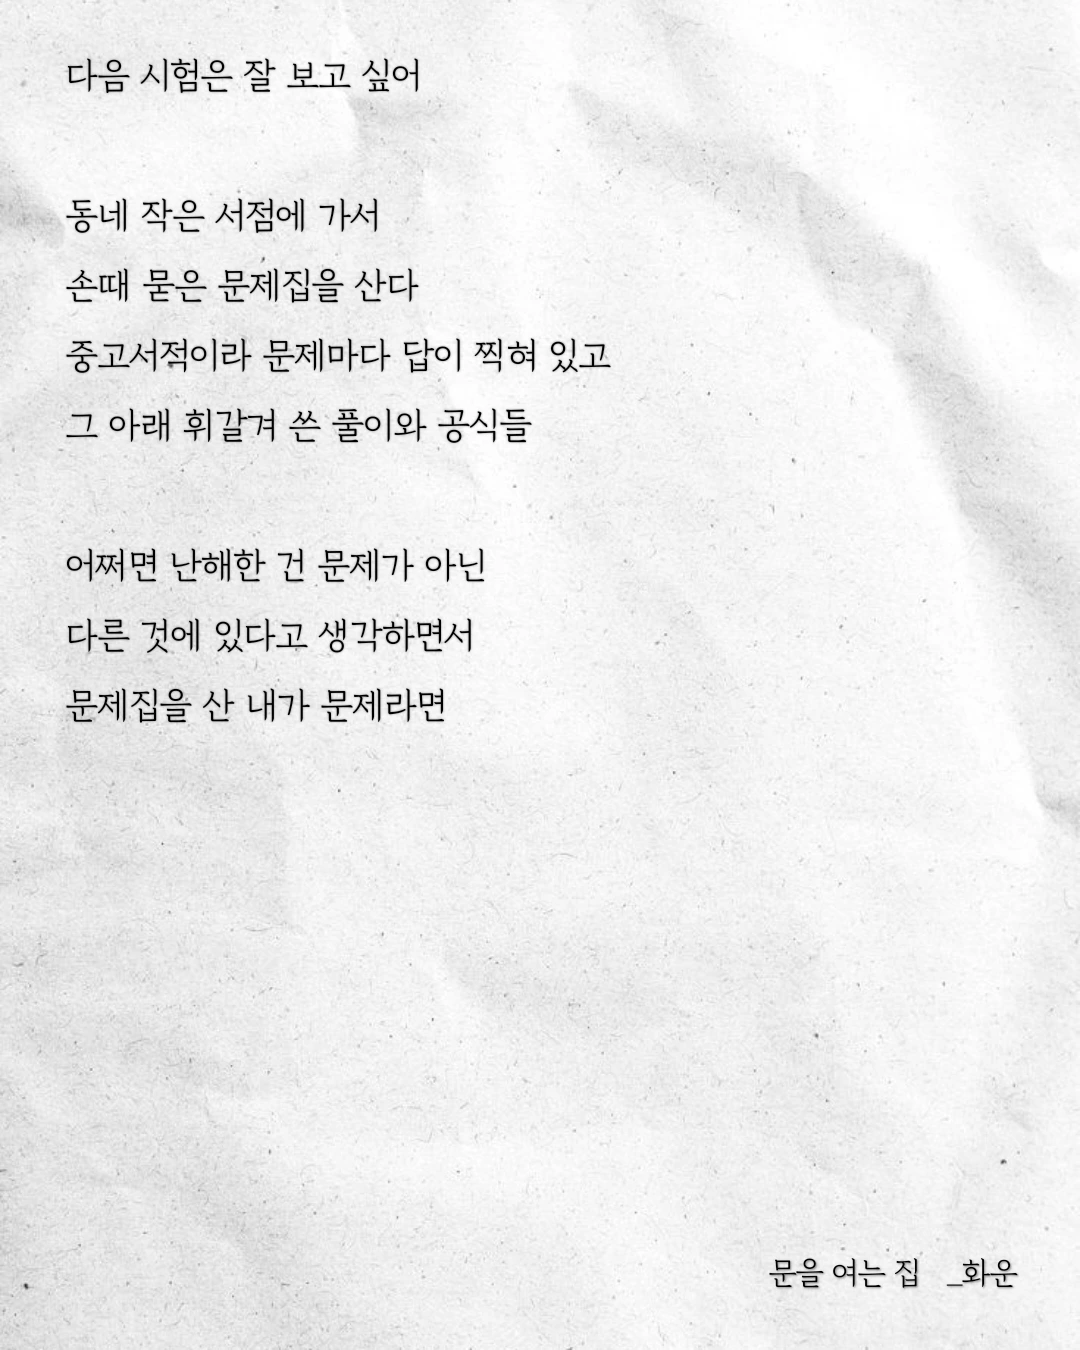 다음 시험은 잘 보고 싶어
동네 작은 서점에 가서
손때 묻은 문제집을 산다
중고서적이라 문제마다 답이 찍혀 있고
그 아래 휘갈겨 쓴 풀이와 공식들
어쩌면 난해한 건 문제가 아닌
다른 것에 있다고 생각하면서
문제집을 산 내가 문제라면
문을 여는 집 _화운